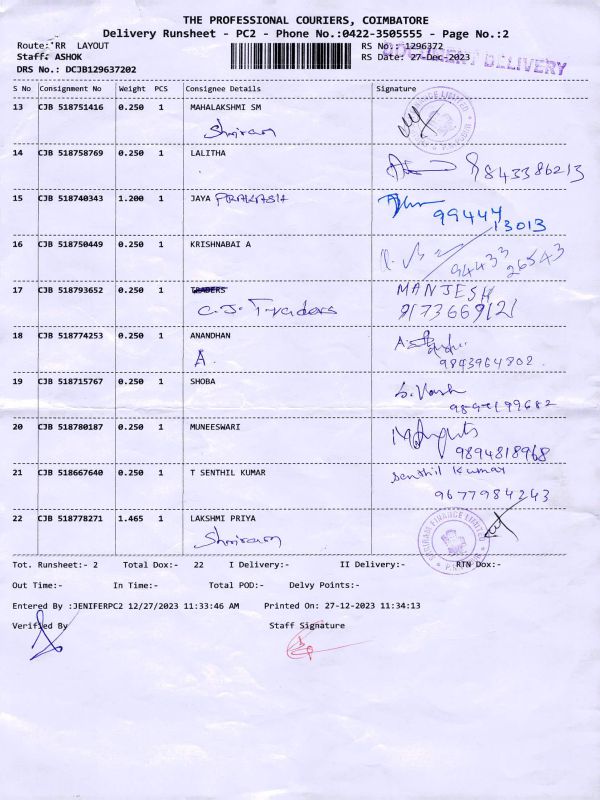 THE PROFESSIONAL COURIERS, COIMBATORE
Delivery Runsheet - PC2 - Phone No.:0422-3505555 - Page No.:2
Route:'RR LAYOUT RS No.: 1296372
Staff: ASHOK RS Date: 27-Dec-2023 DOCUMENT DELIVERY
DRS No.: DCJB129637202
S No Consignment No Weight PCS Consignee Details Signature
13 CJB 518751416 0.250 1 MAHALAKSHMI SM
Shriram
14 CJB 518758769 0.250 1 LALITHA
9843386213
15 CJB 518740343 1.200 1 JAYA PRAKASH
99444
13013
16 CJB 518750449 0.250 1 KRISHNABAI A
94433
26543
17 CJB 518793652 0.250 1 TRADERS MANJESH
C.J. Traders 9173669121
18 CJB 518774253 0.250 1 ANANDHAN
A. 9843964802.
19 CJB 518715767 0.250 1 SHOBA
20 CJB 518780187 0.250 1 MUNEESWARI
9894818968
21 CJB 518667640 0.250 1 T SENTHIL KUMAR Senthil Kumar
9677984243
22 CJB 518778271 1.465 1 LAKSHMI PRIYA SHRIRAM FINANCE LIMITED
Shriram
Tot. Runsheet:- 2 Total Dox:- 22 I Delivery:- II Delivery:- RTN Dox:-
Out Time:- In Time:- Total POD:- Delvy Points:-
Entered By :JENIFERPC2 12/27/2023 11:33:46 AM Printed On: 27-12-2023 11:34:13
Verified By Staff Signature